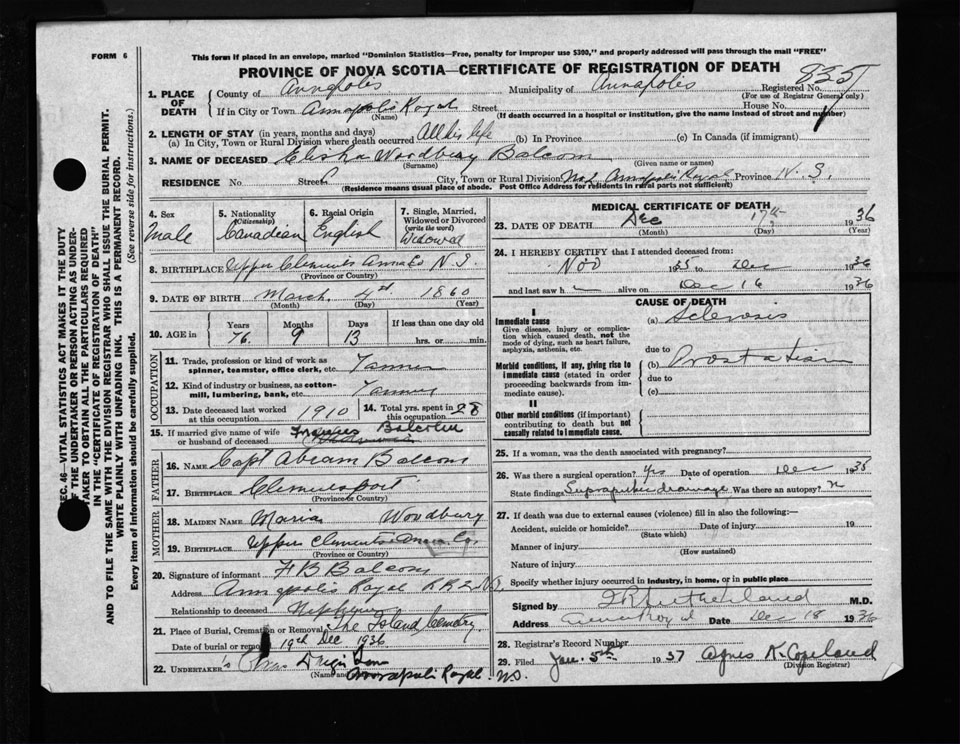 FORM 6
This form if placed in an envelope, marked "Dominion Statistics—Free, penalty for improper use $300," and properly addressed will pass through the mail "FREE"
PROVINCE OF NOVA SCOTIA—CERTIFICATE OF REGISTRATION OF DEATH
835
1. PLACE OF DEATH
County of Annapolis Municipality of Annapolis Registered No.
(For use of Registrar General only)
If in City or Town Annapolis Royal Street House No.
(Name) (If death occurred in a hospital or institution, give the name instead of street and number)
2. LENGTH OF STAY (in years, months and days)
(a) In City, Town or Rural Division where death occurred All his life (b) In Province (c) In Canada (if immigrant)
3. NAME OF DECEASED Elisha Woodbury Balcom
(Surname) (Given name or names)
RESIDENCE No Street City, Town or Rural Division No 2 Annapolis Royal Province N.S.
(Residence means usual place of abode. Post Office Address for residents in rural parts not sufficient)
4. Sex Male
5. Nationality (Citizenship) Canadian
6. Racial Origin English
7. Single, Married, Widowed or Divorced (write the word) Widowed
8. BIRTHPLACE Upper Clements Anna Co N.S.
(Province or Country)
9. DATE OF BIRTH March 4 1860
(Month) (Day) (Year)
10. AGE in Years 76 Months 9 Days 13 If less than one day old hrs. or min.
OCCUPATION
11. Trade, profession or kind of work as spinner, teamster, office clerk, etc. Tanner
12. Kind of industry or business, as cotton-mill, lumbering, bank, etc.
13. Date deceased last worked at this occupation 1910
14. Total yrs. spent in this occupation 28
15. If married give name of wife or husband of deceased Balcom
FATHER
16. NAME Capt Abram Balcom
17. BIRTHPLACE Clementsport
(Province or Country)
MOTHER
18. MAIDEN NAME Maria Woodbury
19. BIRTHPLACE Upper Clements Anna Co.
(Province or Country)
20. Signature of informant F B Balcom
Address Annapolis Royal R R 2 N.S.
Relationship to deceased Nephew
21. Place of Burial, Cremation or Removal The Island Cemetry
Date of burial or removal 19th Dec 1936
22. UNDERTAKER
(Name and Annapolis Royal N.S.
MEDICAL CERTIFICATE OF DEATH
23. DATE OF DEATH Dec 17th 1936
(Month) (Day) (Year)
24. I HEREBY CERTIFY that I attended deceased from:
Nov 1935 to Dec 1936
and last saw h alive on Dec 16 1936
CAUSE OF DEATH
I
Immediate cause
Give disease, injury or complication which caused death, not the mode of dying, such as heart failure, asphyxia, asthenia, etc.
(a) Sclerosis
due to
Morbid conditions, if any, giving rise to immediate cause (stated in order proceeding backwards from immediate cause).
(b)
due to
(c)
II
Other morbid conditions (if important) contributing to death but not causally related to immediate cause.
25. If a woman, was the death associated with pregnancy?
26. Was there a surgical operation? Yes Date of operation Dec 1935
State findings Suprapubic drainage Was there an autopsy? N
27. If death was due to external causes (violence) fill in also the following:—
Accident, suicide or homicide? Date of injury 19
(State which)
Manner of injury
(How sustained)
Nature of injury
Specify whether injury occurred in industry, in home, or in public place
Signed by Sutherland M.D.
Address Anna Royal Date Dec 18 1936
28. Registrar's Record Number
29. Filed Jan. 5th 1937 Agnes K. Copeland
(Division Registrar)
SEC. 46—VITAL STATISTICS ACT MAKES IT THE DUTY
OF THE UNDERTAKER OR PERSON ACTING AS UNDERTAKER TO OBTAIN ALL THE PARTICULARS REQUIRED
IN THE "CERTIFICATE OF REGISTRATION OF DEATH"
AND TO FILE THE SAME WITH THE DIVISION REGISTRAR WHO SHALL ISSUE THE BURIAL PERMIT.
WRITE PLAINLY WITH UNFADING INK. THIS IS A PERMANENT RECORD.
Every item of Information should be carefully supplied. (See reverse side for instructions.)